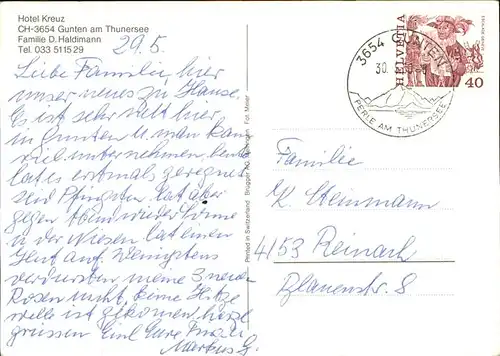 Hotel Kreuz
CH-3654 Gunten am Thunersee
Familie D. Haldimann
Tel. 033 51 15 29
29.5.
Liebe Familie, hier
unser neues zu Hause.
Es ist sehr nett hier
in Gunten u. man kann
viel unternehmen, heute
hat es erstmals geregnet
seit Pfingsten, hat aber
gegen Abend wieder Sonne
u. der Wiesen hat einen
auf. Wenigstens
verdursten meine 3 neuen
Rosen nicht, keine Hitze
welle ist gekommen, herzl
grüssen Euch Eure
Markus
Printed in Switzerland Brügger AG, Meiringen Fot. Meier
3654 GUNTEN
30.
PERLE AM THUNERSEE
HELVETIA
40
Familie
K. Steinmann
4153 Reinach
Blauenstr. 8